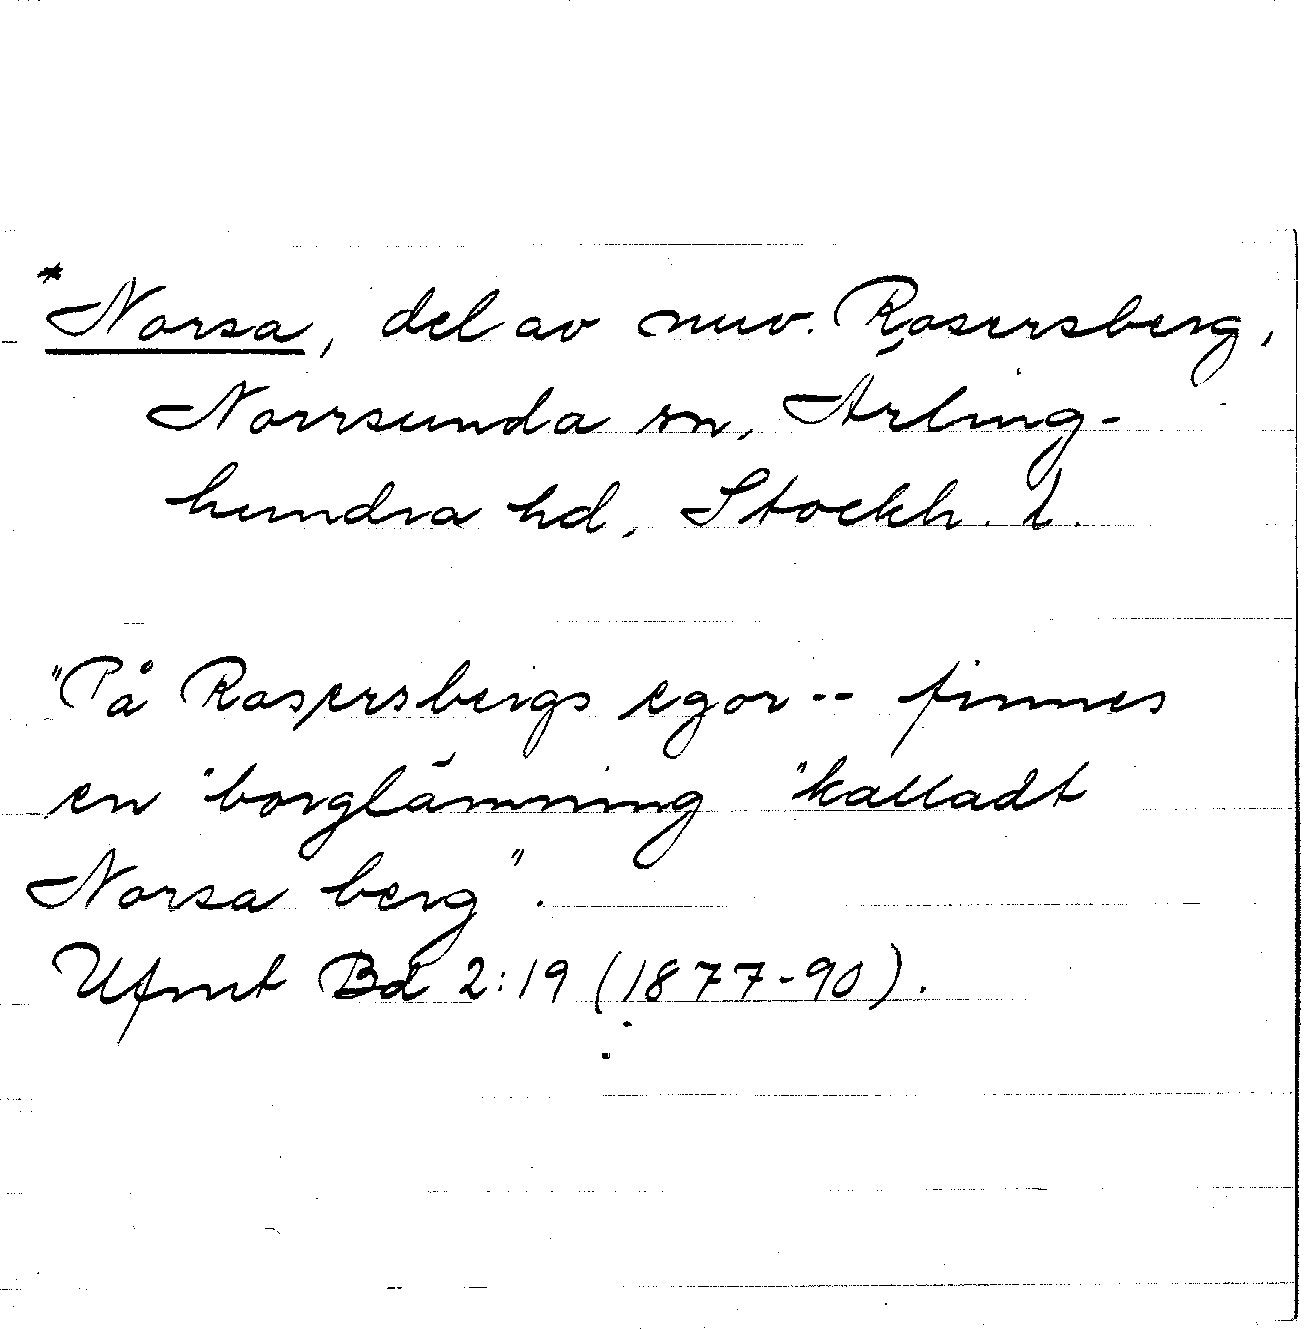 *Norsa, del av nuv. Rosersberg,
Norrsunda sn, Ärling-
hundra hd, Stockh. l.
"På Rosersbergs egor -- finnes
en "borglämning "kalladt
Norsa berg".
Ufmt Bd 2:19 (1877-90).